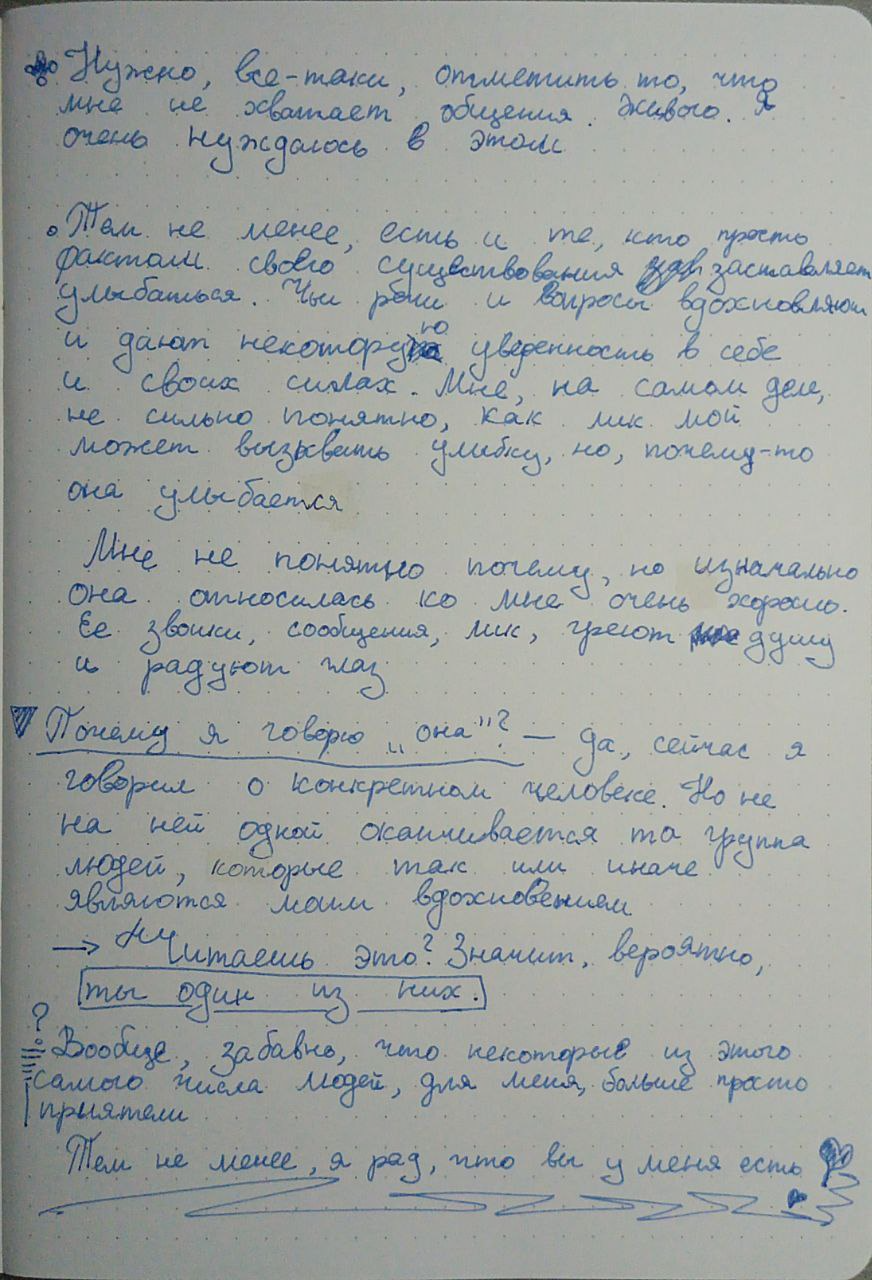 Нужно, все-таки, отметить то, что
мне не хватает общения. Живого. Я
очень нуждаюсь в этом
Тем не менее, есть и те, кто просто
фактом своего существования заставляет
улыбаться. Чьи речи и вопросы вдохновляют
и дают некоторую уверенность в себе
и своих силах. Мне, на самом деле,
не сильно понятно, как лик мой
может вызывать улыбку, но, почему-то
она улыбается
Мне не понятно почему, но изначально
она относилась ко мне очень хорошо.
Ее звонки, сообщения, лик, греют душу
и радуют глаз
Почему я говорю „она"? — Да, сейчас я
говорил о конкретном человеке. Но не
на ней одной оканчивается та группа
людей, которые так или иначе
являются моим вдохновением
→ Читаешь это? Значит, вероятно,
ты один из них.
?
Вообще, забавно, что некоторые из этого
самого числа людей, для меня, больше просто
приятели
Тем не менее, я рад, что вы у меня есть